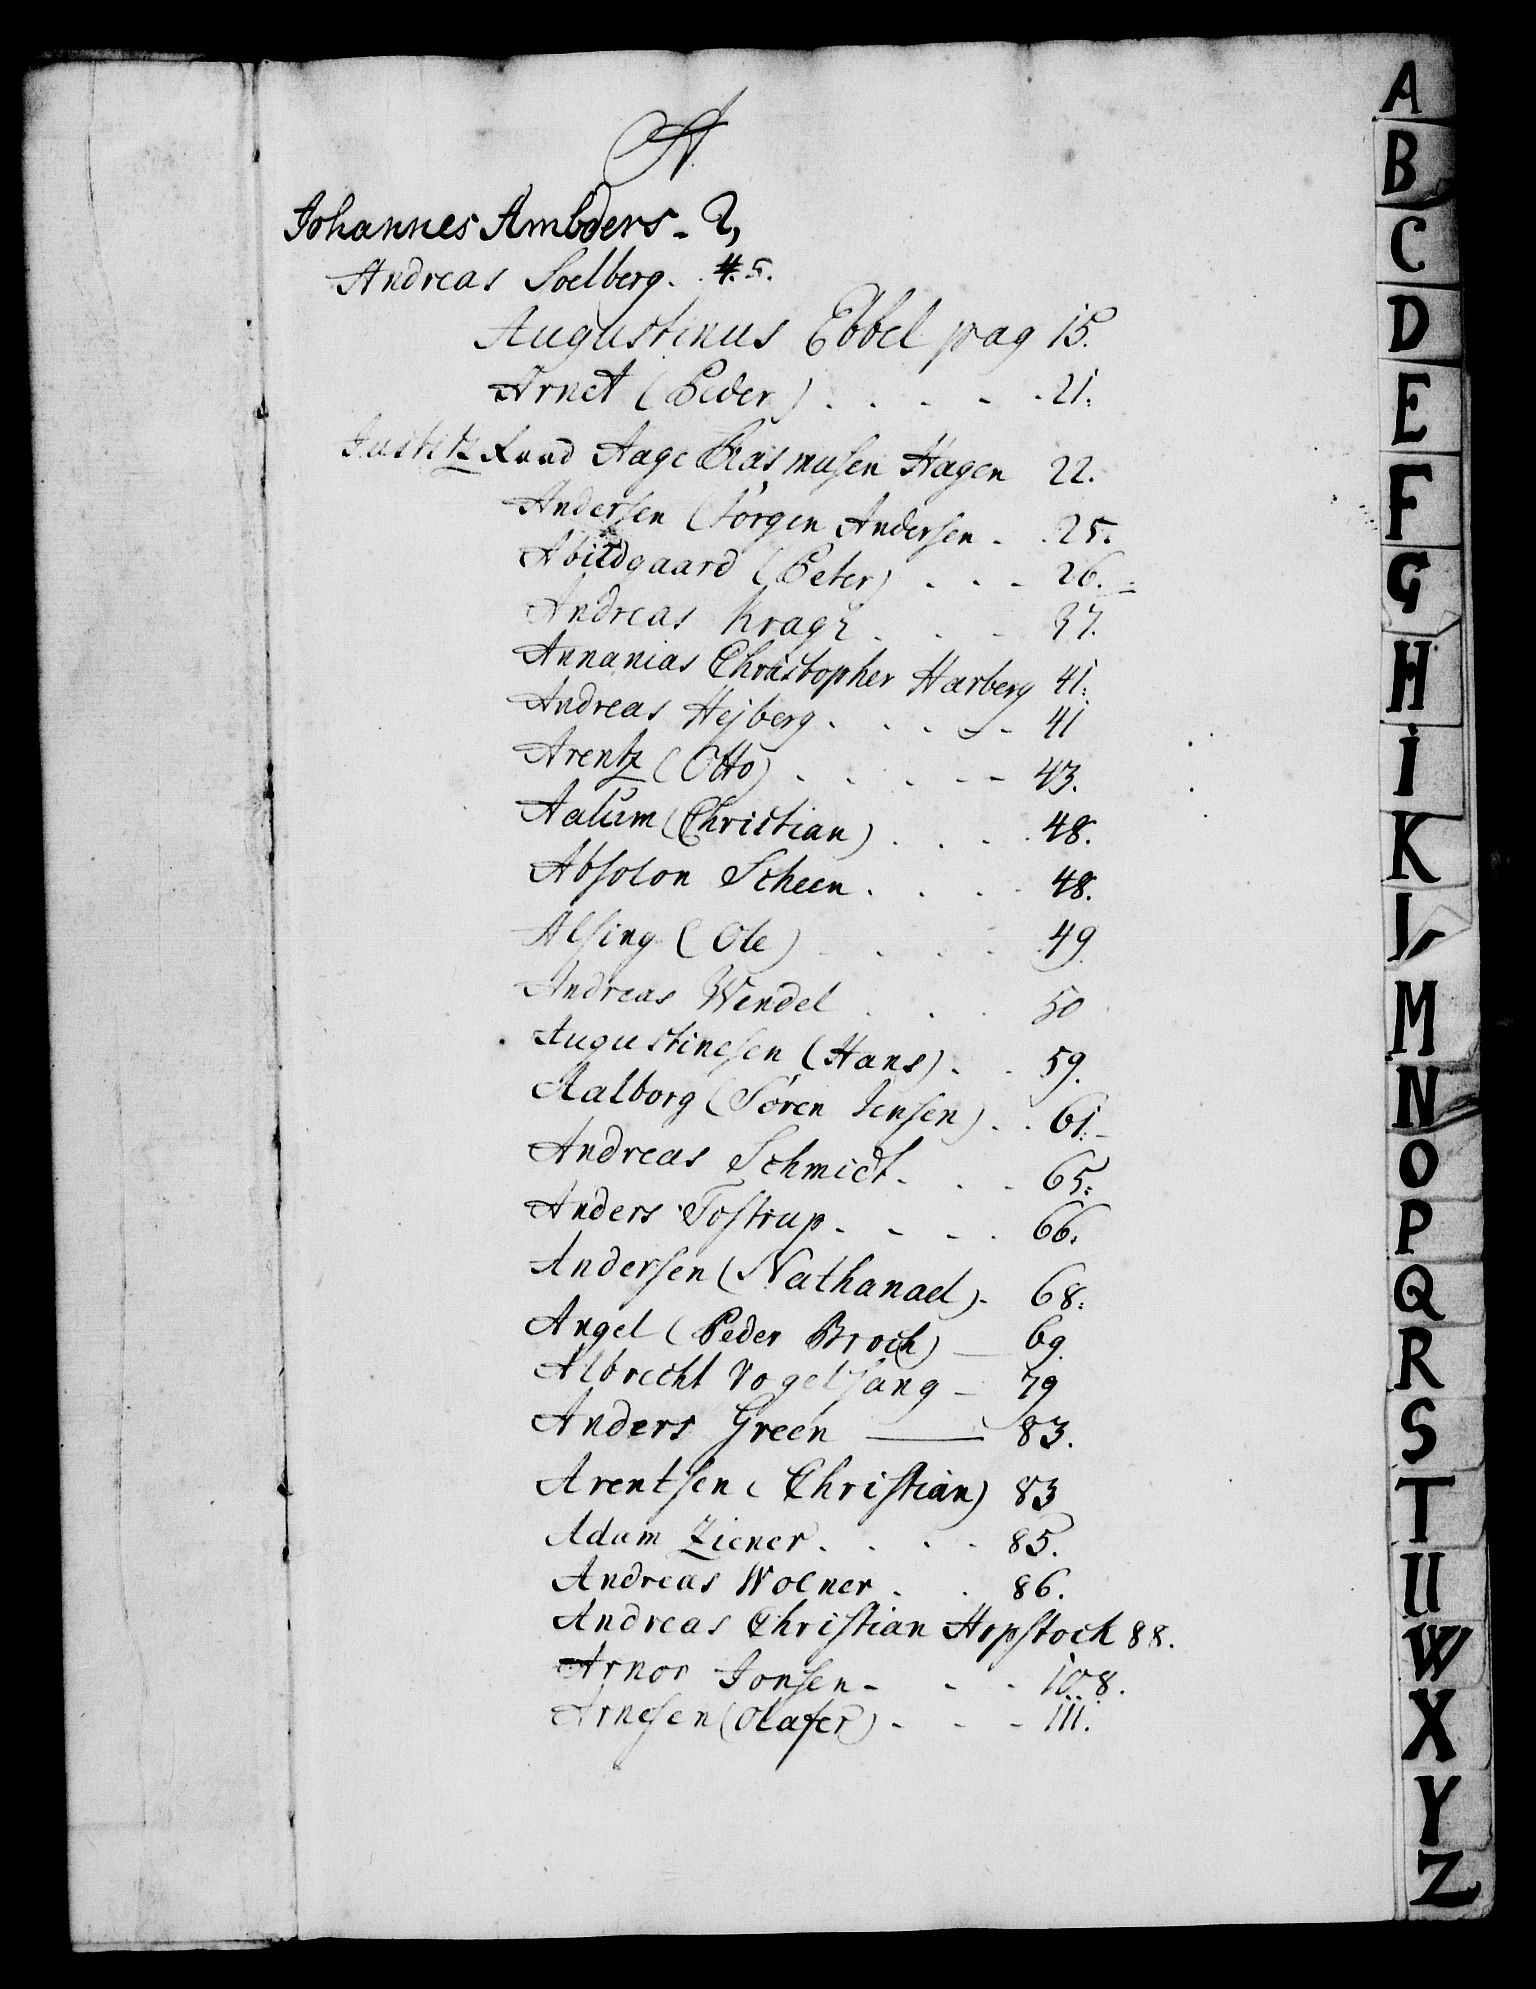 A.
Johannes Ambders - 2,
Andreas Soelberg. #. 5.
Augustinus Ebbel pag 15.
Arnet (Peder) . . . - - . 21.
Justitz Raad Aage Rasmusen Hagen 22.
Andersen (Jörgen Andersen - . 25.
Abildgaard (Peter) . - - 26.
Andreas Kragh . . - 37.
Annanias Christopher Harberg 41.
Andreas Hejberg . . . - - 41
Arentz (Otto) . . . - - 43.
Aalum (Christian) . . . . 48.
Absolon Scheen . . . . 48.
Alsing (Ole) . . . . 49
Andreas Wendel . . . 50
Augustinesen (Hans) . . 59.
Aalborg (Sören Jensen) . . 61.
Andreas Schmidt . . . 65.
Anders Tostrup . . . . 66.
Andersen (Nathanael) - 68.
Angel (Peder Broch) — 69.
Albrecht Vogelsang — 79
Anders Green — 83.
Arentsen (Christian) 83
Adam Ziener . . . . 85.
Andreas Wolner . . 86.
Andreas Christian Hopstock 88.
Arnor Jonsen - - - 108.
Arnesen (Olafer) - - - 111.
A
B
C
D
E
F
G
H
I
K
L
M
N
O
P
Q
R
S
T
U
W
X
Y
Z